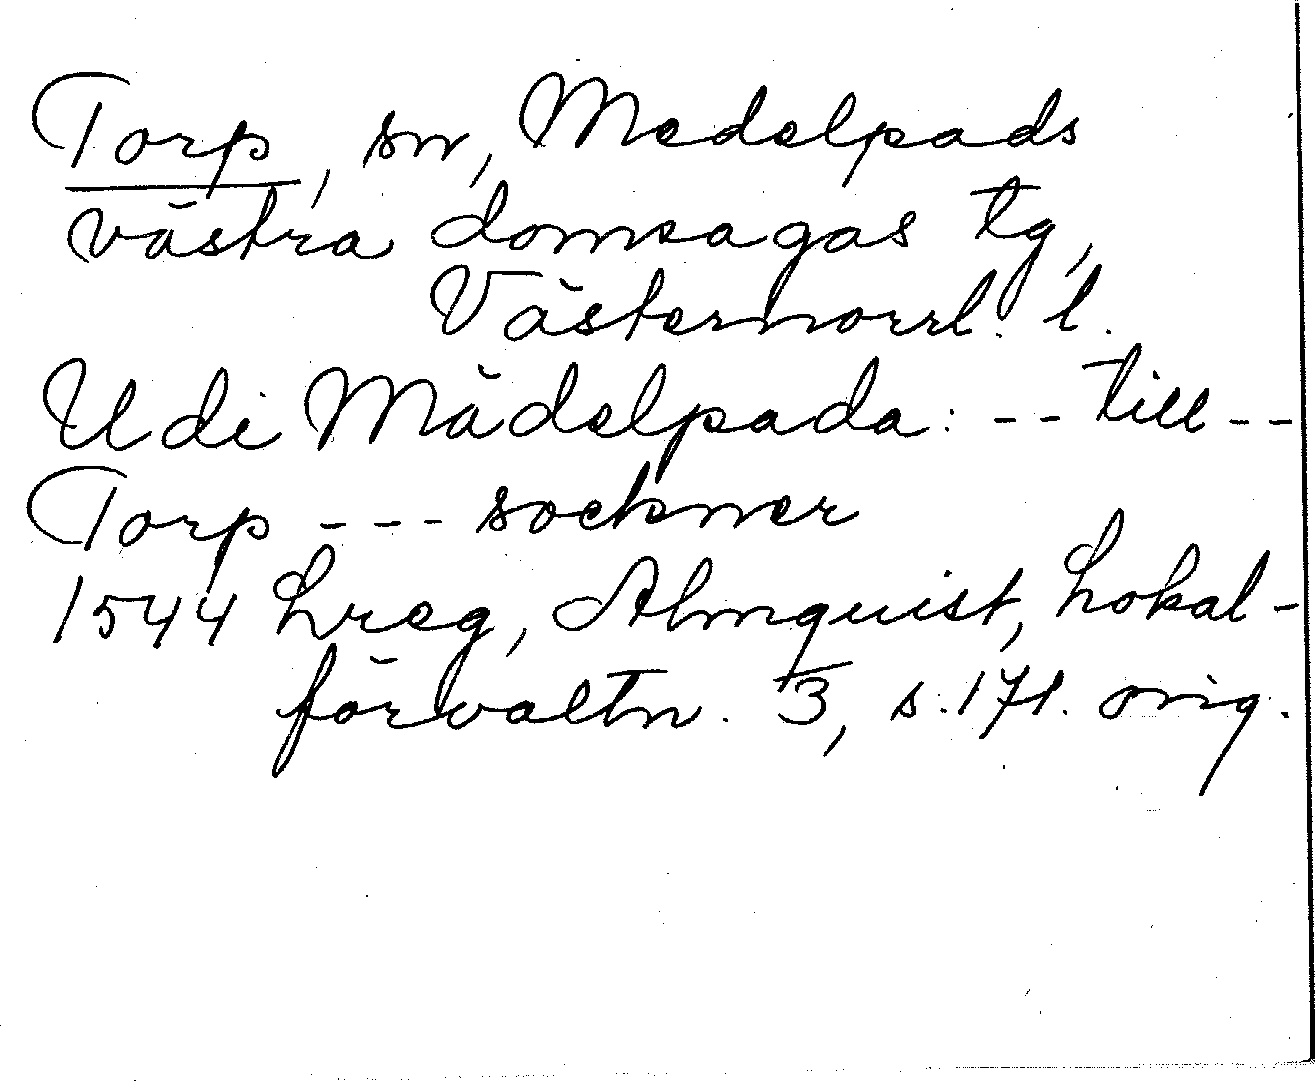 Torp, sn, Medelpads
västra domsagas tg,
Västernorrl. l.
Udi Mädelpada: -- till --
Torp --- sockner
1544 Lreg, Almquist, Lokal-
förvaltn. 3, s. 171. orig.